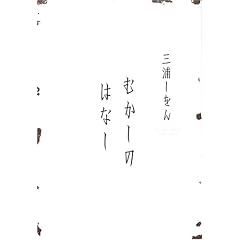 三浦しをん
むかしの
はなし